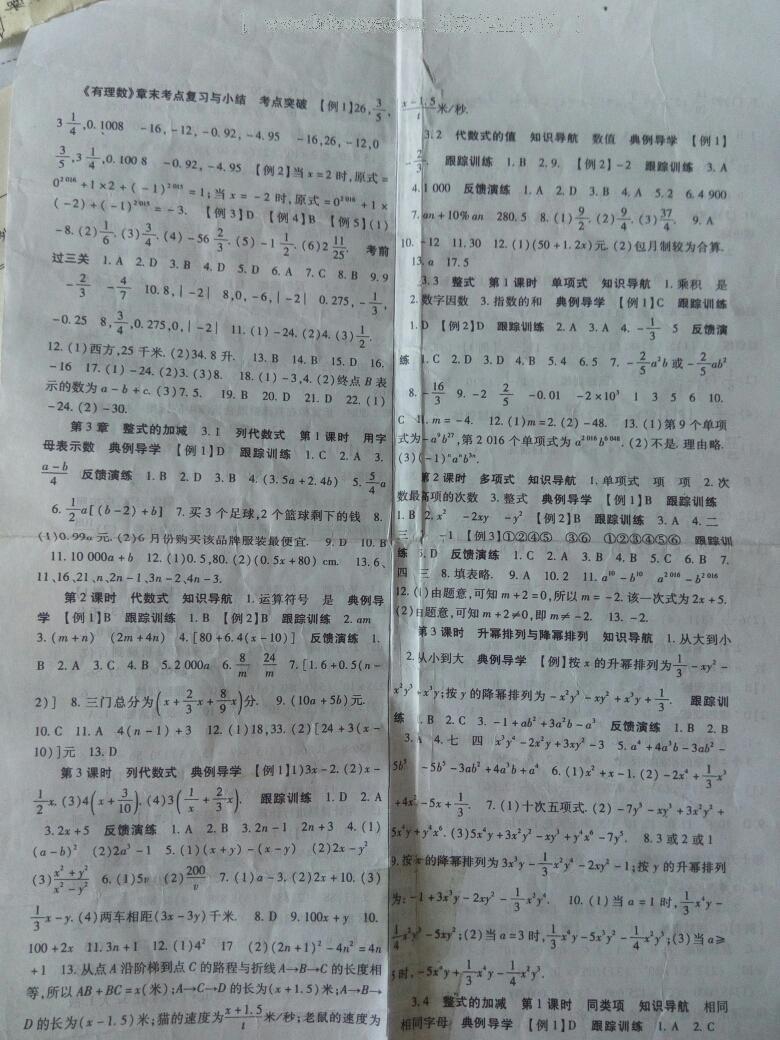 《有理数》章末考点复习与小结 考点突破 【例1】26,3/5,
3 1/4,0.1008 -16,-12,-0.92,-4.95 -16,26,-12,0
3/5,3 1/4,0.100 8 -0.92,-4.95 【例2】当x=2时,原式=
0^2016+1×2+(-1)^2015=1;当x=-2时,原式=0^2016+1×
(-2)+(-1)^2015=-3. 【例3】D 【例4】B 【例5】(1)
-8.(2)1/6.(3)3/4.(4)-56 2/3.(5)-1 1/2.(6)2 11/25. 考前
过三关 1.A 2.D 3.B 4.D 5.D 6.A 7.C 8.B 9.9
-2/3 -4/7 10.8,|-2| 8,0,-6,|-2| 0.275,-1/3,
-0.25 8,3/4,0.275,0,|-2| 11.(1)-24.(2)4.(3)1/2.
12.(1)西方,25千米.(2)34.8升. 13.B 14.B 15.D 16.
-16 17.(1)-24.(2)3.(3)8. 18.(1)-3,4.(2)终点B表
示的数为a-b+c.(3)7.5. 19.B 20.D 21.D 22.(1)
-24.(2)-30.
第3章 整式的加减 3.1 列代数式 第1课时 用字
母表示数 典例导学 【例1】D 跟踪训练 1.C 2.A 3.
(a-b)/4 反馈演练 1.B 2.D 3.B 4.(3.5a+2.4b) 5.5/4 a
6.1/2 a[(b-2)+b] 7.买3个足球,2个篮球剩下的钱 8.
(1)0.99a元.(2)6月份购买该品牌服装最便宜. 9.D 10.B
11.10 000a+b 12.(1)0.5,80.(2)(0.5x+80) cm. 13.6、
11、16、21、n、2n-1、3n-2、4n-3.
第2课时 代数式 知识导航 1.运算符号 是 典例导
学 【例1】B 跟踪训练 1.B 【例2】B 跟踪训练 2.am
3.(m+n) (2m+4n) 4.[80+6.4(x-10)] 反馈演练 1.
B 2.A 3.C 4.B 5.2 000a 6.8/m 24/m 7.[1.6+0.5(n-
2)] 8.三门总分为(x+2/3 x+8/9 x)分. 9.(10a+5b)元.
10.C 11.A 4(n-1)+3 12.(1)18,33.(2)[24+3(x-
10)]元 13.D
第3课时 列代数式 典例导学 【例1】1)3x-2.(2)x-
1/2 x.(3)4(x+3/10).(4)3(1/x+2/3 x). 跟踪训练 1.D 2.A
3.2x+5 反馈演练 1.A 2.B 3.2n-1 2n+3 4.(1)
(a-b)² (2)2a³-1 5.(1)(x+y)-(x-y) (2)2x-y²
(3)(x²+y²)/(x²-y²) 6.(1)5v (2)200/v 7.(1)a-3.(2)2x+10.(3)
1/3 x-y.(4)两车相距(3x-3y)千米. 8.D 9.100x+y 10.
100+2x 11.3n+1 12.(1)4² 17 (2)(2n+1)²-4n²=4n
+1 13.从点A沿阶梯到点C的路程与折线A→B→C的长度相
等,所以AB+BC=x(米);A→C→D的长为(x+1.5)米;A→B→
D的长为(x-1.5)米;猫的速度为(x+1.5)/t米/秒;老鼠的速度为
(x-1.5)/t米/秒.
3.2 代数式的值 知识导航 数值 典例导学 【例1】
-2/3. 跟踪训练 1.B 2.9. 【例2】-2 跟踪训练 3.A
4.1 000 反馈演练 1.A 2.D 3.B 4.A 5.2 6.4 900
7.an+10%an 280.5 8.(1)9/2.(2)9/4.(3)37/4. 9.A
10.-12 11.30 12.(1)(50+1.2x)元.(2)包月制较为合算.
13.a 17.5
3.3 整式 第1课时 单项式 知识导航 1.乘积 是
2.数字因数 3.指数的和 典例导学 【例1】C 跟踪训练
1.D 【例2】D 跟踪训练 2.A 3.A 4.-1/3 5 反馈演
练 1.C 2.D 3.D 4.B 5.4 6.5 7.-2/5 a²b或-2/5 ab²
8.-16/3 9.-2 2/5 -0.01 -2×10³ 1 3 5 6 10.
C 11.m=-4. 12.(1)m=2.(2)-48. 13.(1)第9个单项
式为-a⁹b²⁷,第2 016个单项式为a^2016 b^6048.(2)不是.理由略.
(3)(-1)ⁿaⁿb³ⁿ.
第2课时 多项式 知识导航 1.单项式 项 项 2.次
数最高项的次数 3.整式 典例导学 【例1】B 跟踪训练
1.B 2.x² -2xy -y² 【例2】B 跟踪训练 3.A 4.二
三 -1 【例3】①②④⑤ ③⑥ ①②③④⑤⑥ 跟踪训
练 5.D 反馈演练 1.C 2.A 3.B 4.B 5.C 6.B 7.
四 三 8.填表略. 9.A 10.2 11.a¹⁰-b¹⁰ a^2016-b^2016
12.(1)由题意,可知m+2=0,所以m=-2.该一次式为2x+5.
(2)由题意,可知m+2≠0,即m≠-2. 13.-2.
第3课时 升幂排列与降幂排列 知识导航 1.从大到小
2.从小到大 典例导学 【例】按x的升幂排列为1/3-xy²-
x²y³+x³y;按y的降幂排列为-x²y³-xy²+x³y+1/3. 跟踪训
练 1.B 2.C 3.-1+ab²+3a²b-a³ 反馈演练 1.B 2.B
3.A 4.七 四 x³y⁴-2x²y+3xy²-3 5.a⁴+4a³b-3ab²-
5b⁵ -5b⁵-3ab²+4a³b+a⁴ 6.(1)x²+x-1.(2)-2x⁴+1/3 x³
+4x²-5x+1/3. 7.(1)十次五项式.(2)-7y⁵-xy³+3x²y²+
5x⁴y+y⁴x⁶.(3)5x⁴y+3x²y²-xy³+y⁴x⁶-7y⁵. 8.3或2或1
9.按x的降幂排列为3x³y-1/3 x²y⁴-2xy²-1;按y的升幂排列
为:-1+3x³y-2xy²-1/3 x²y⁴. 10.(1)当a=1时,1/3 x⁴y-
1/4 x²y³-5xy²;(2)当a=3时,1/3 x⁴y-5x³y²-1/4 x²y³;(3)当a≥
5时,-5x⁵y+1/3 x⁴y-1/4 x²y³.
3.4 整式的加减 第1课时 同类项 知识导航 相同
相同字母 典例导学 【例1】D 跟踪训练 1.A 2.C